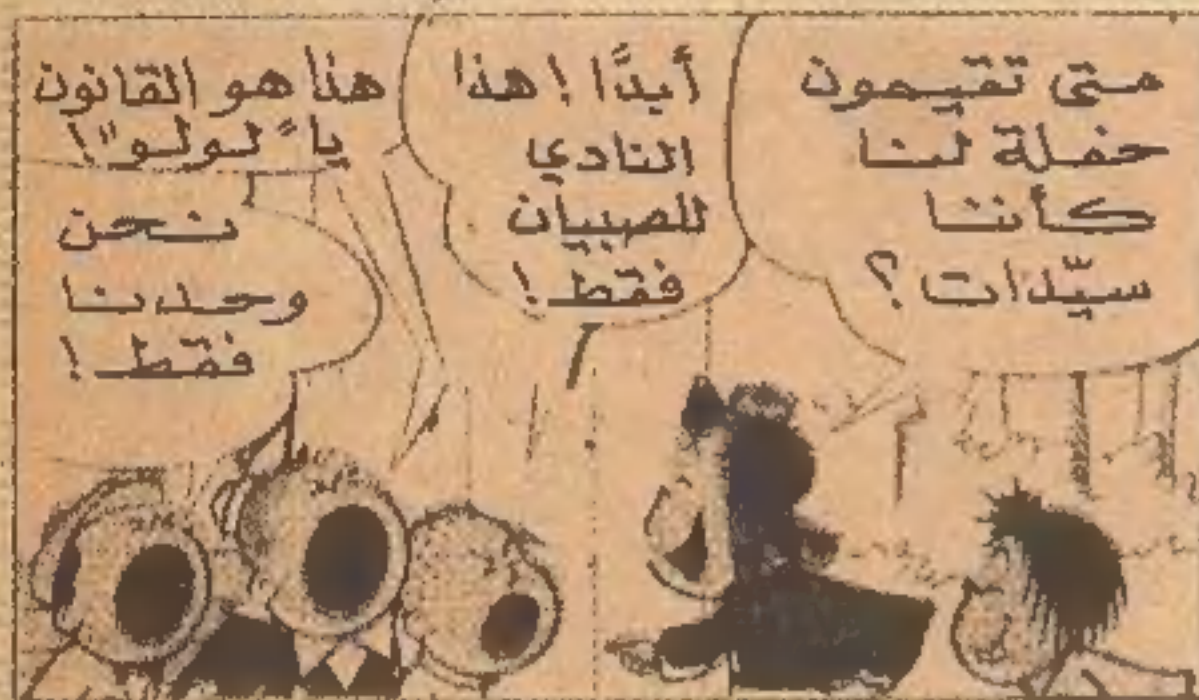 متى تقيمون
حفلة لنا
كأننا
سيّدات؟
أبدًا! هذا
النادي
للصبيان
فقط!
هذا هو القانون
يا "لولو"!
نحن
وحدنا
فقط!